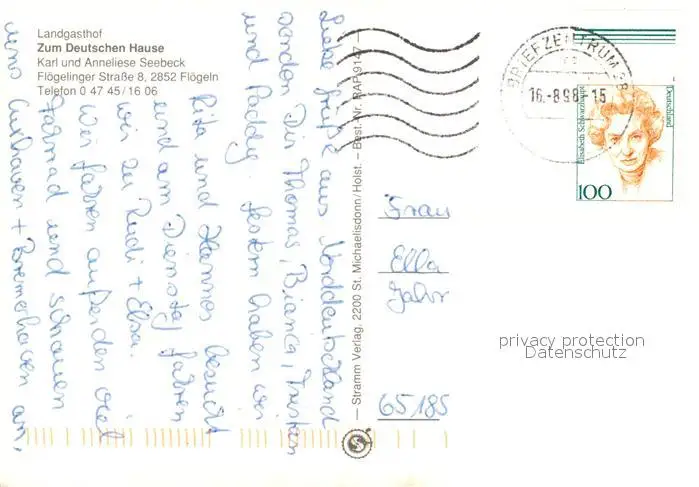 Landgasthof
Zum Deutschen Hause
Karl und Anneliese Seebeck
Flögelinger Straße 8, 2852 Flögeln
Telefon 0 47 45/16 06
Liebe Grüße aus Norddeutschland
senden Dir Thomas, Bianca, Kirsten
und Paddy. Gestern haben wir
Rita und Hannes besucht
und am Dienstag fahren
wir zu Rudi + Elsa.
Wir fahren außerdem viel
Fahrrad und schauen
uns Cuxhaven + Bremerhaven an.
— Stramm Verlag, 2200 St. Michaelisdonn/Holst. – Best.-Nr. RAP 9147 —
BRIEFZENTRUM 28
16.-8.98-15
Deutschland
Elisabeth Schwarzhaupt
100
Frau
Ella
Jahr
65185
privacy protection
Datenschutz